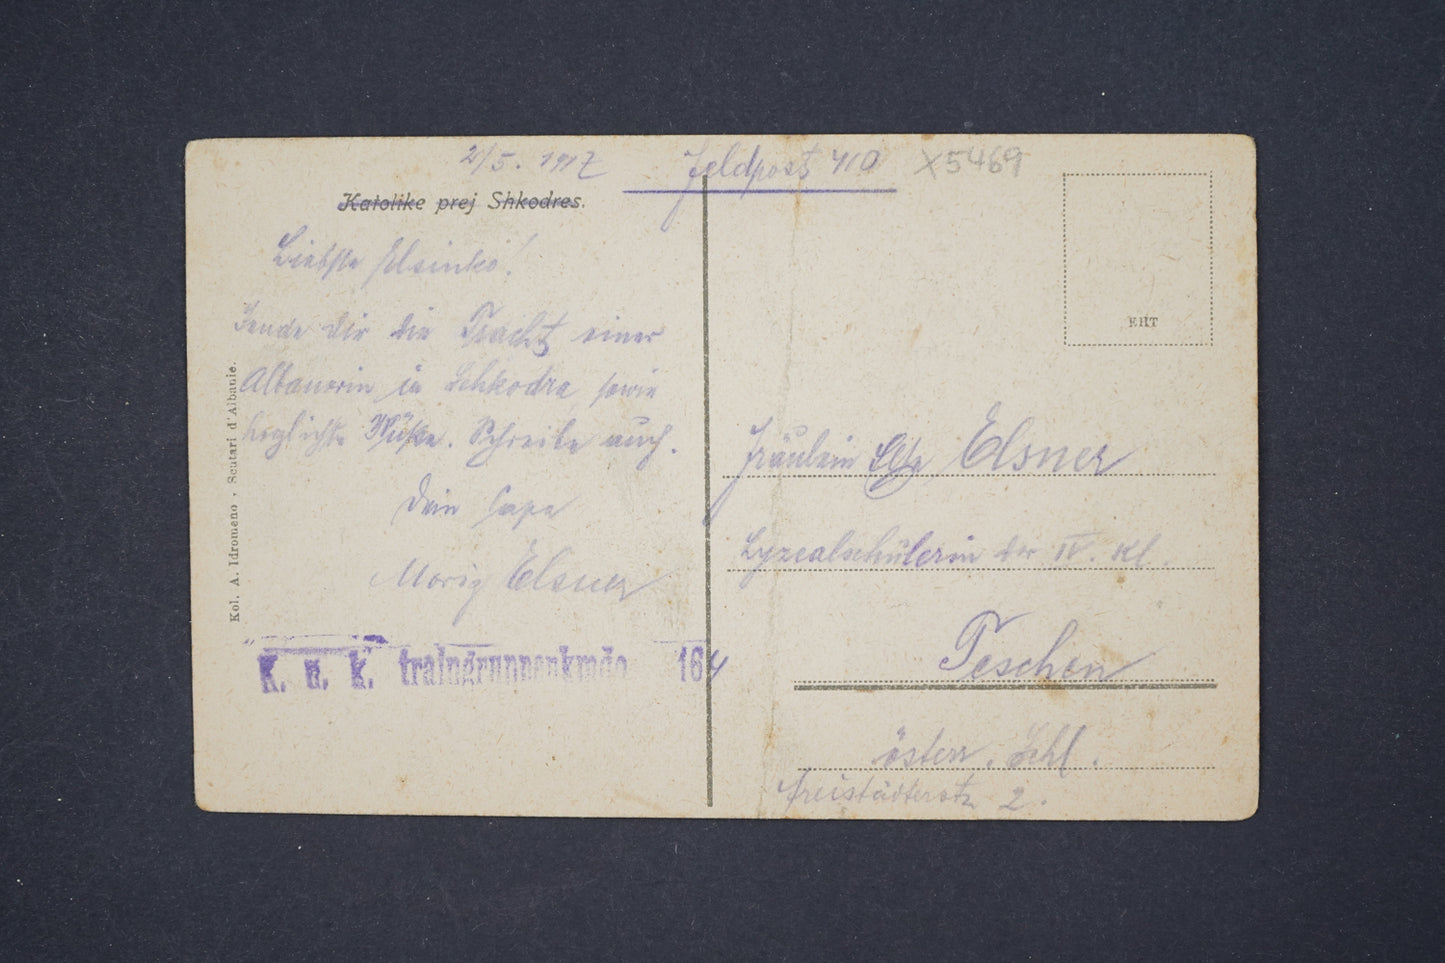 2/5. 1917
Feldpost 410
X5469
Katolike prej Shkodres.
Liebste
Sende Dir die Tracht einer
Albanerin in Schkodra sowie
herzlichste Küße. Schreibe auch.
Dein Papa
Moriz Elsner
K. u. k. traingruppenkmdo 164
Kol. A. Idromeno · Scutari d'Albanie.
EHT
Fräulein Elsner
Lyzealschülerin der IV. Kl.
Teschen
österr. Schl.
Freistädterstr. 2.